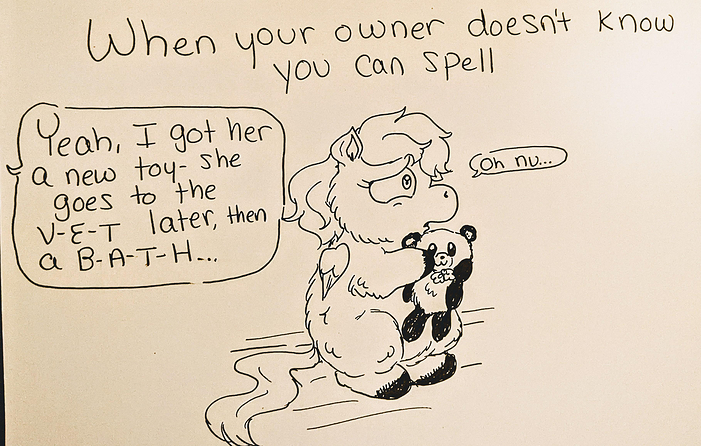 When your owner doesn't know
you can spell
Yeah, I got her
a new toy- she
goes to the
V-E-T later, then
a B-A-T-H...
Oh nu...